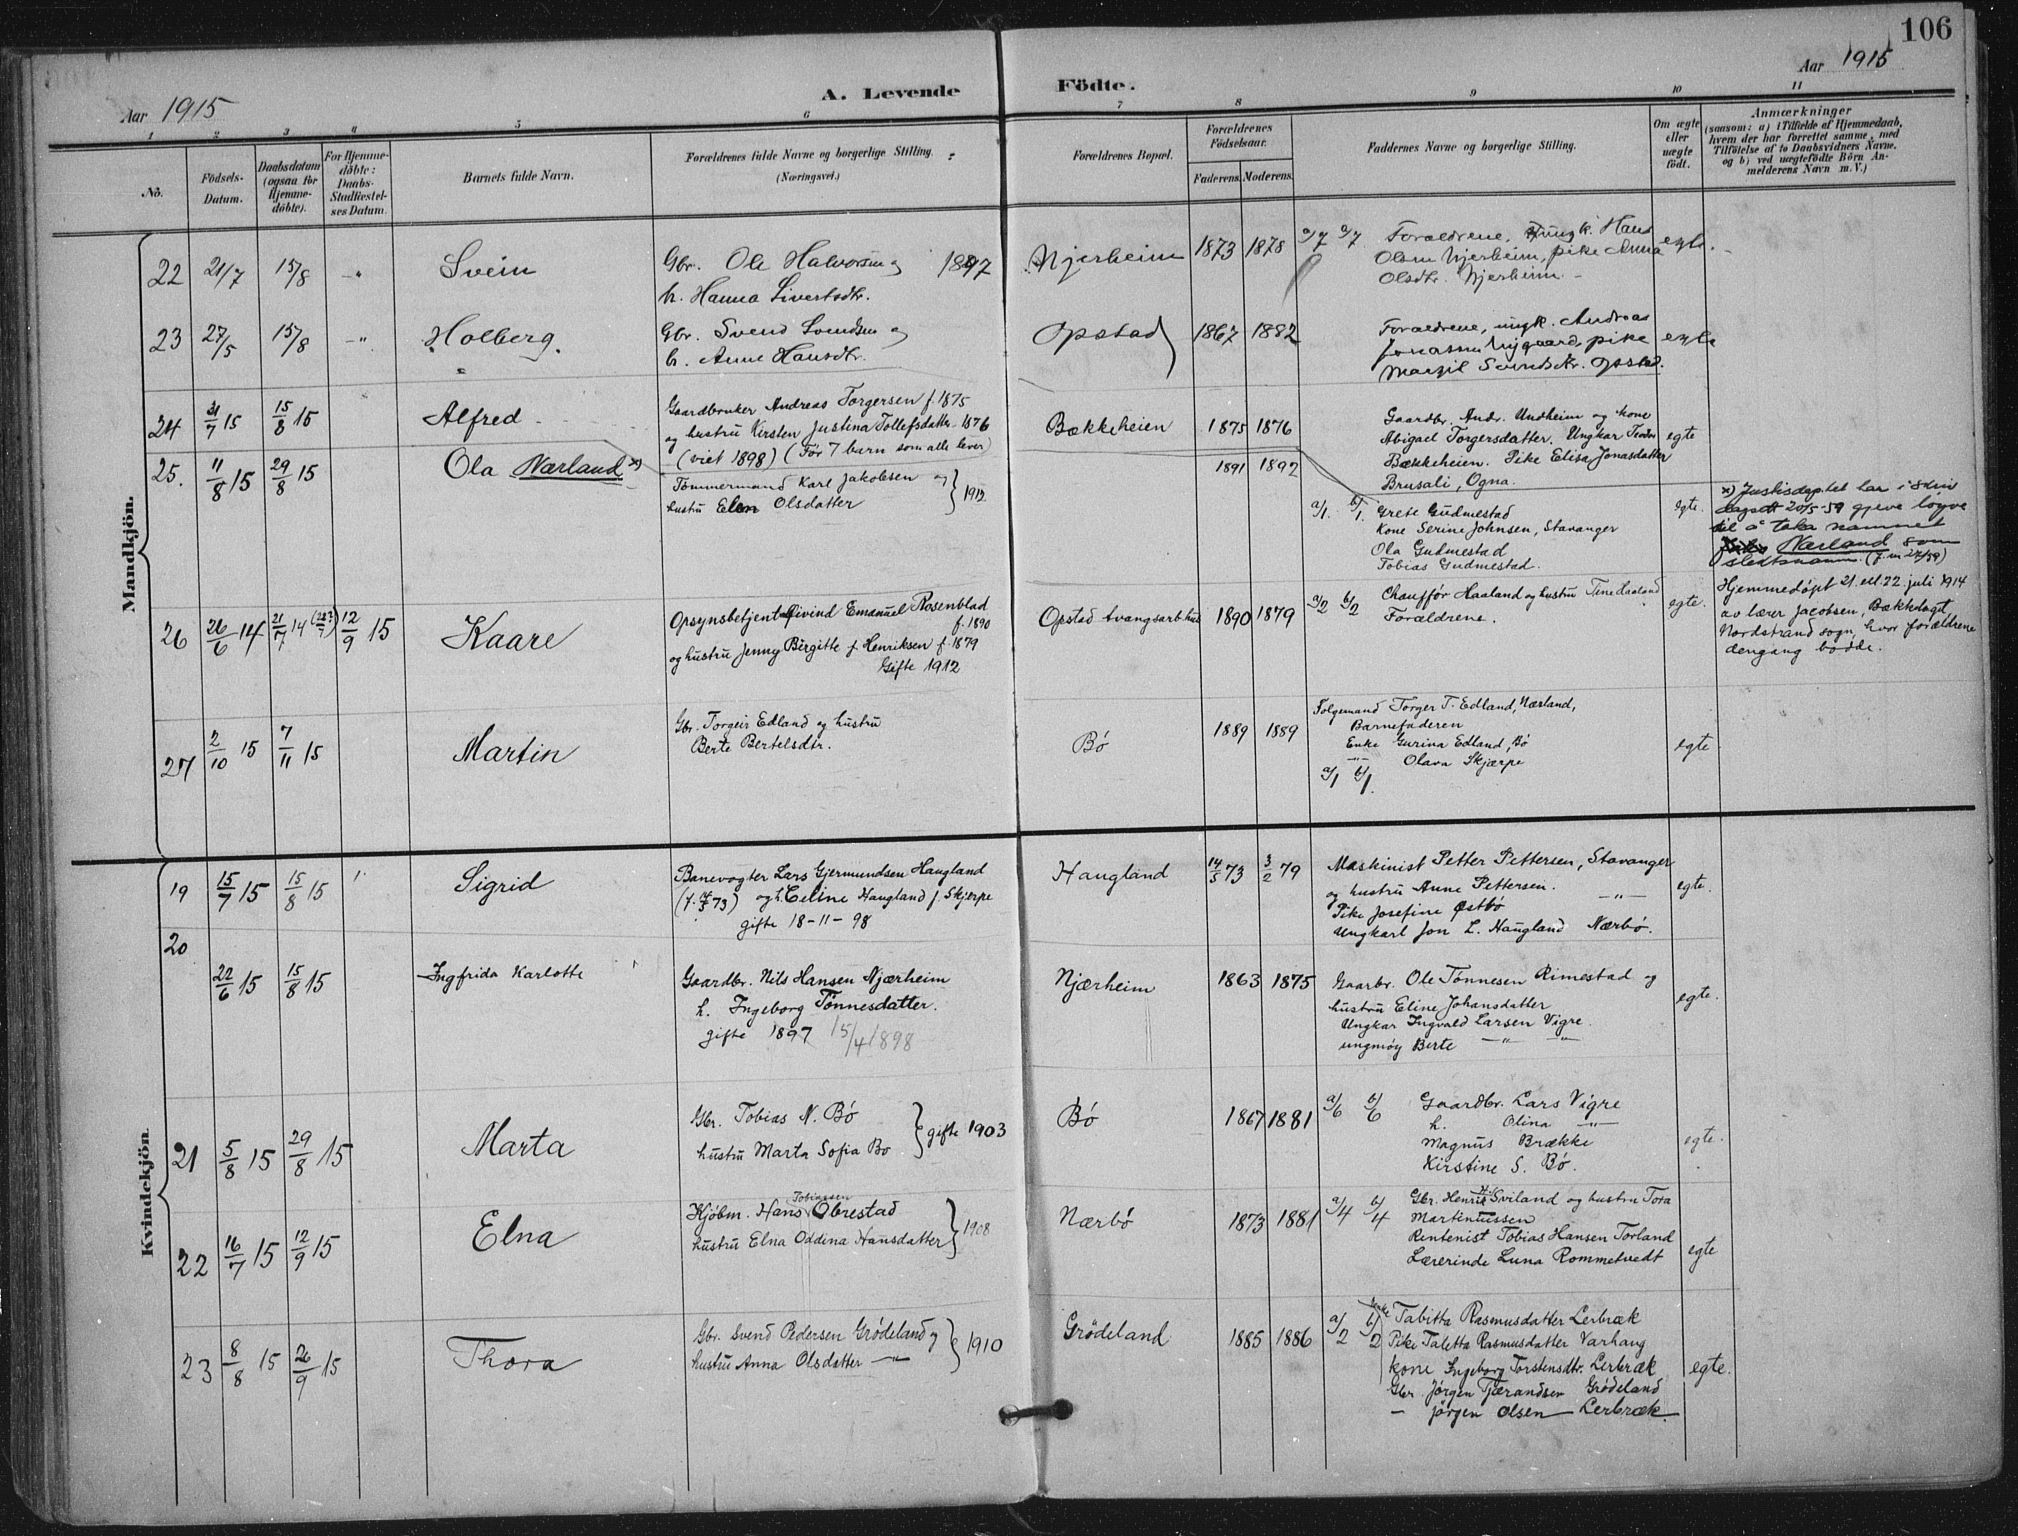 106
Aar 1915
A. Levende
Födte.
Aar 1915
1 2 3 4 5 6 7 8 9 10 11
No.
Födsels-
Datum.
Daabsdatum
(ogsaa for
Hjemme-
döbte).
For Hjemme-
döbte:
Daabs-
Stadfæstel-
ses Datum.
Barnets fulde Navn.
Forældrenes fulde Navne og borgerlige Stilling.
(Næringsvei.)
Forældrenes Bopæl.
Forældrenes
Födselsaar.
Faderens. Moderens.
Faddernes Navne og borgerlige Stilling.
Om ægte
eller
uægte
födt.
Anmærkninger
(saasom: a) i Tilfælde af Hjemmedaab,
hvem der har forrettet samme, med
Tilföielse af to Daabsvidners Navne.
og b) ved uægtefödte Börn An-
melderens Navn m. V.)
Mandkjön.
22 21/7 15/8 -"- Svein
Gbr. Ole Halvorsen og 1897
h. Hanna Sivertsdtr.
Njerheim 1873 1878 a/7 b/7
Forældrene, ungk. Hans
Olsen Njerheim, pike Anna
Olsdtr. Njerheim.
egte.
23 27/5 15/8 -"- Holberg.
Gbr. Svend Svendsen og
h. Anne Hansdtr.
Opstad 1867 1882
Forældrene, ungk. Andreas
Jonassen Nygaard, pike
Margit Svendsdtr. Opstad.
egte
24 31/7 15 15/8 15 Alfred
Gaardbruker Andreas Torgersen f. 1875
og hustru Kirsten Justina Tollefsdatter 1876
(viet 1898) (Før 7 barn som alle lever)
Bækkeheien 1875 1876
Gaardbr. And. Undheim og kone
Abigael Torgersdatter. Ungkar Teodor
Bækkeheien. Pike Elisa Jonasdatter
Brusali, Ogna.
egte
25. 11/8 15 29/8 15 Ola Nærland x)
Tømmermand Karl Jakobsen og
hustru Elen Olsdatter } 1912
1891 1892
a/1. b/1. Grete Gudmestad
Kone Serine Johnsen, Stavanger
Ola Gudmestad
Tobias Gudmestad.
egte.
x) Justisdep.tet har i skriv
dagsett 20/5-59 gjeve løyve
til å taka namnet
Nærland som
slektsnamn. (J.nr 27/59)
26 26/6 14 21/7 14 (22?/7) 12/9 15 Kaare
Opsynsbetjent Eivind Emanuel Rosenblad
f. 1890
og hustru Jenny Birgitte f. Henriksen f. 1879
Gifte 1912
Opstad tvangsarb.hus 1890 1879 a/2 b/2
Chauffør Haaland og hustru Tine Haaland
Forældrene.
egte.
Hjemmedøpt 21. ell. 22. juli 1914
av lærer Jacobsen, Bækkelaget
Nordstrand sogn, hvor forældrene
dengang bodde.
27 2/10 15 7/11 15 Martin
Gbr. Torgeir Edland og hustru
Berte Bertelsdtr.
Bø 1889 1889
Følgemand Torger T. Edland, Nærland,
Barnefaderen
Enke Gurina Edland, Bø
-"- Olava Skjærpe
a/1 b/1.
egte
Kvindekjön.
19 15/7 15 15/8 15 Sigrid
Banevogter Lars Gjermundsen Haugland
(f. 14/5 73) og h. Celine Haugland f. Skjerpe
gifte 18-11-98
Haugland 14/5 73 3/2 79
Maskinist Petter Pettersen, Stavanger
og hustru Anne Pettersen. -"-
Pike Josefine Østbø
Ungkarl Jon L. Haugland Nærbø.
egte.
20 22/6 15 15/8 15 Ingfrida Karlotte
Gaardbr. Nils Hansen Njærheim
h. Ingeborg Tønnesdatter.
gifte 1897 15/4 1898
Njærheim 1863 1875
Gaarbr. Ole Tønnesen Rimestad og
hustru Eline Johansdatter
Ungkar Ingvald Larsen Vigre.
ungmøy Berte -"- -"-
egte.
21 5/8 15 29/8 15 Marta
Gbr. Tobias N. Bø
hustru Marta Sofia Bø } gifte 1903
Bø 1867 1881 a/6 b/6
Gaardbr. Lars Vigre
h. Olina -"-
Magnus Brække
Kirstine S. Bø.
egte.
22 16/7 15 12/9 15 Elna
Kjøbm. Hans Tobiassen Obrestad
hustru Elna Oddina Hansdatter } 1908
Nærbø 1873 1881 a/4 b/4
Gbr. Henrik Sviland og hustru Tora
Martinussen
Rentenist Tobias Hansen Torland
Lærerinde Luna Rommetvedt
egte
23 8/8 15 26/9 15 Thora
Gbr. Svend Pedersen Grødeland og
hustru Anna Olsdatter -"- } 1910
Grødeland 1885 1886 a/2 b/2
Enke Tabitta Rasmusdatter Lerbræk
Pike Taletta Rasmusdatter Varhaug
kone Ingeborg Torstensdtr. Lerbræk
Gbr. Jørgen Tjerandsen Grødeland
— Jørgen Olsen — Lerbræk.
egte.